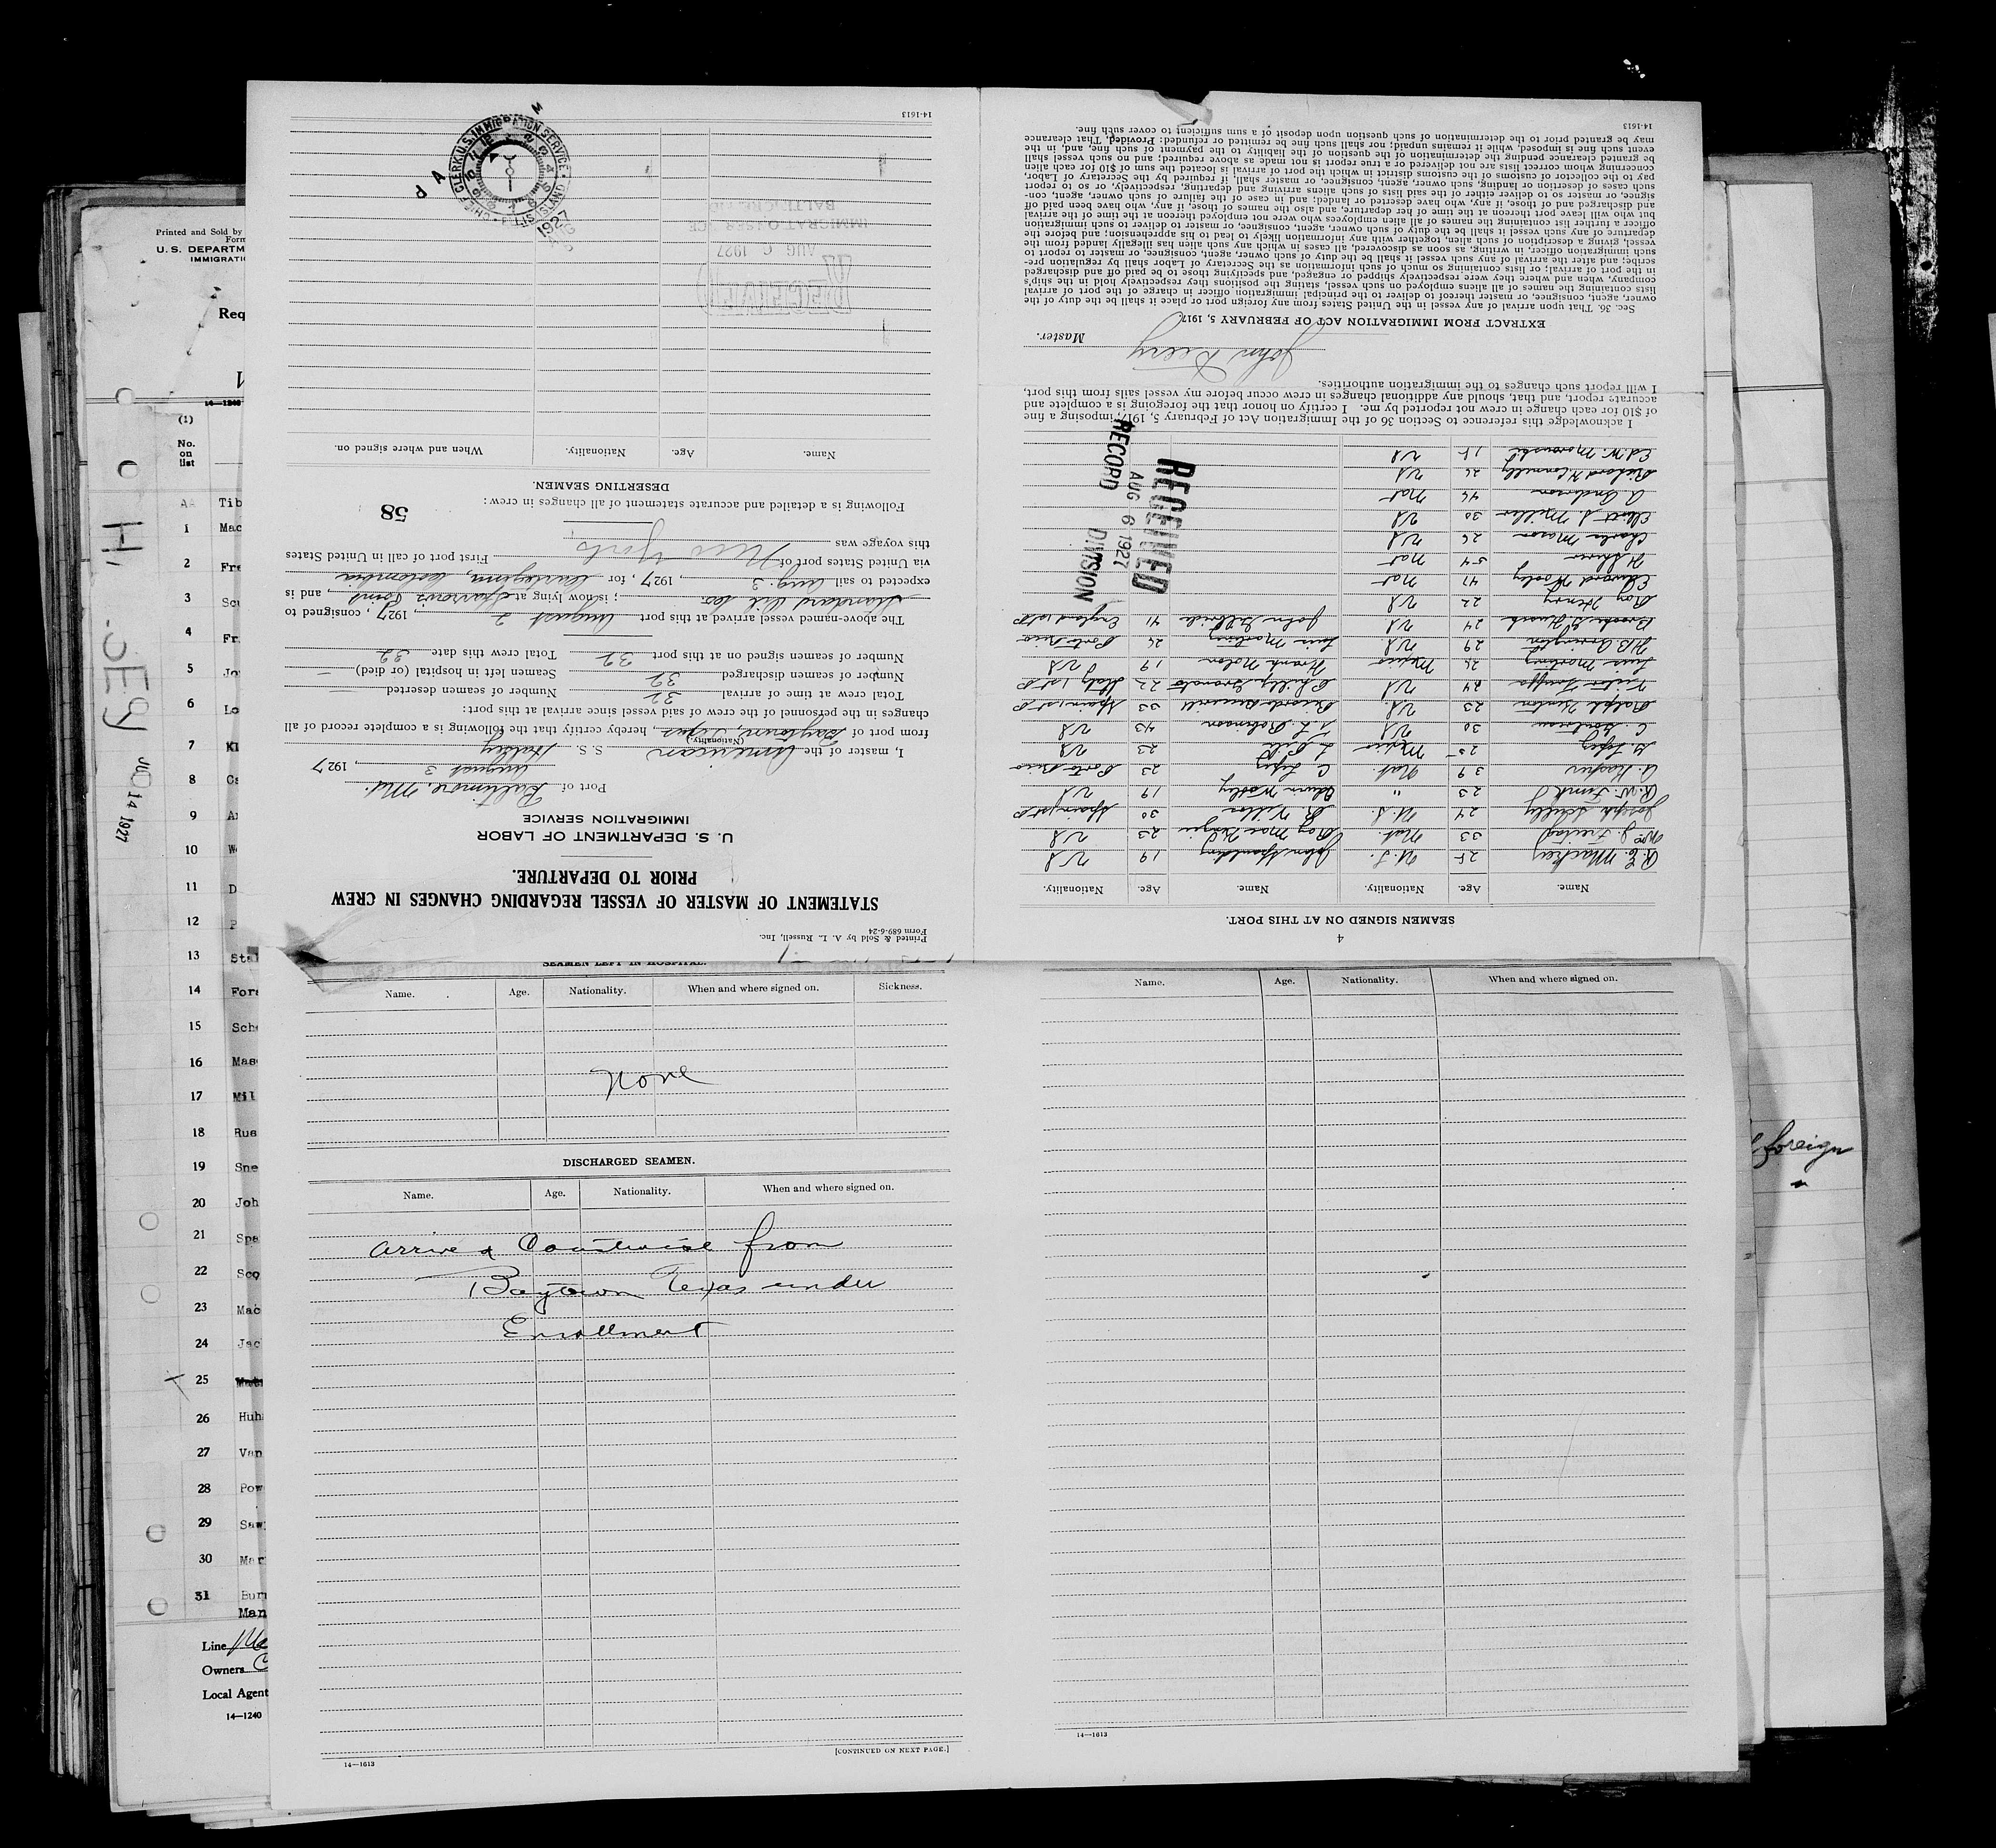 Printed & Sold by A. L. Russell, Inc.
Form 689-6-24
STATEMENT OF MASTER OF VESSEL REGARDING CHANGES IN CREW
PRIOR TO DEPARTURE.
U. S. DEPARTMENT OF LABOR
IMMIGRATION SERVICE
Port of Baltimore, Md.
August 3, 1927
I, master of the American S. S.
(Nationality.)
from port of Baytown, Texas, hereby certify that the following is a complete record of all
changes in the personnel of the crew of said vessel since arrival at this port:
Total crew at time of arrival 32 Number of seamen deserted —
Number of seamen discharged 32 Seamen left in hospital (or died) —
Number of seamen signed on at this port 32 Total crew this date 32
The above-named vessel arrived at this port August 2, 1927, consigned to
Standard Oil Co.; is now lying at Sparrows Point, and is
expected to sail Aug. 3, 1927, for Cartagena, Colombia
via United States port of First port of call in United States
this voyage was New York
Following is a detailed and accurate statement of all changes in crew:
58
DESERTING SEAMEN.
Name. Age. Nationality. When and where signed on.
RECEIVED
AUG 1927
BALTIMORE MD
CHIEF CLERK U.S. IMMIGRATION SERVICE
1927
14-1613
4
SEAMEN SIGNED ON AT THIS PORT.
Name. Age. Nationality. Name. Age. Nationality.
R. E. Mackey 25 U.S. John Spaulding 19 US
Wm J. Freitag 33 Nat. Roy MacKenzie 23 US
Joseph Scully 24 U.S. 30 Spain 1st P
R. W. Funk 23 " Edwin Wooley 19 US
A. Kasper 39 Nat. C. Lopez 23 Porto Rico
G. Lopez 25 Mexico 23 US
C. 30 US L. Robinson 43 US
Ralph 23 US Ricardo 33 Spain 1st P
Victor 24 US Phillip 22 Italy 1st P
Luis Martinez 26 Mexico Frank Nolan 19 US
H B Covington 29 US Luis Martinez 26 Porto Rico
24 US John Gilbride 41 England 1st P
Roy Henry 22 US
Edward Wooley 47 Nat
54 Nat
Charles Mason 26 US
Elliott S Miller 30 US
A. Anderson 44 Nat
Richard K Connelly 26 US
Ed. W. 18 US
I acknowledge this reference to Section 36 of the Immigration Act of February 5, 1917, imposing a fine
of $10 for each change in crew not reported by me. I certify on honor that the foregoing is a complete and
accurate report, and that, should any additional changes in crew occur before my vessel sails from this port,
I will report such changes to the immigration authorities.
John
Master.
RECEIVED
AUG 6 1927
RECORD DIVISION
EXTRACT FROM IMMIGRATION ACT OF FEBRUARY 5, 1917.
Sec. 36. That upon arrival of any vessel in the United States from any foreign port or place it shall be the duty of the
owner, agent, consignee, or master thereof to deliver to the principal immigration officer in charge of the port of arrival
lists containing the names of all aliens employed on such vessel, stating the positions they respectively hold in the ship's
company, when and where they were respectively shipped or engaged, and specifying those to be paid off and discharged
in the port of arrival; or lists containing so much of such information as the Secretary of Labor shall by regulation pre-
scribe; and after the arrival of any such vessel it shall be the duty of such owner, agent, consignee, or master to report to
such immigration officer, in writing, as soon as discovered, all cases in which any such alien has illegally landed from the
vessel, giving a description of such alien, together with any information likely to lead to his apprehension; and before the
departure of any such vessel it shall be the duty of such owner, agent, consignee, or master to deliver to such immigration
officer a further list containing the names of all alien employees who were not employed thereon at the time of the arrival
but who will leave port thereon at the time of her departure, and also the names of those, if any, who have been paid off
and discharged and of those, if any, who have deserted or landed; and in case of the failure of such owner, agent, con-
signee, or master so to deliver either of the said lists of such aliens arriving and departing, respectively, or so to report
such cases of desertion or landing, such owner, agent, consignee, or master shall, if required by the Secretary of Labor,
pay to the collector of customs of the customs district in which the port of arrival is located the sum of $10 for each alien
concerning whom correct lists are not delivered or a true report is not made as above required; and no such vessel shall
be granted clearance pending the determination of the question of the liability to the payment of such fine, and, in the
event such fine is imposed, while it remains unpaid; nor shall such fine be remitted or refunded: Provided, That clearance
may be granted prior to the determination of such question upon deposit of a sum sufficient to cover such fine.
14-1613
SEAMEN LEFT IN HOSPITAL.
Name. Age. Nationality. When and where signed on. Sickness.
None
DISCHARGED SEAMEN.
Name. Age. Nationality. When and where signed on.
Arrived Coastwise from
Baytown Texas under
Enrollment
[CONTINUED ON NEXT PAGE.]
14—1613
Name. Age. Nationality. When and where signed on.
14—1613
Printed and Sold by
Form
U. S. DEPARTM
IMMIGRATIO
Req
14—1240
(1)
No.
on
list
Tib
1 Mac
2 Fre
3 Scu
4 Fr
5 Jo
6 Lo
7 Kl
8
9
10
11 D
12
13 Sta
14 Fora
15 Sch
16 Mas
17 Mil
18 Rus
19 Sne
20 Joh
21 Spa
22 Sco
23 Mac
24 Jac
25
26 Huh
27 Van
28 Pow
29 Saw
30 Mar
31 Bur
Man
Line
Owners
Local Agent
14—1240
JUL 14 1927
foreign
"